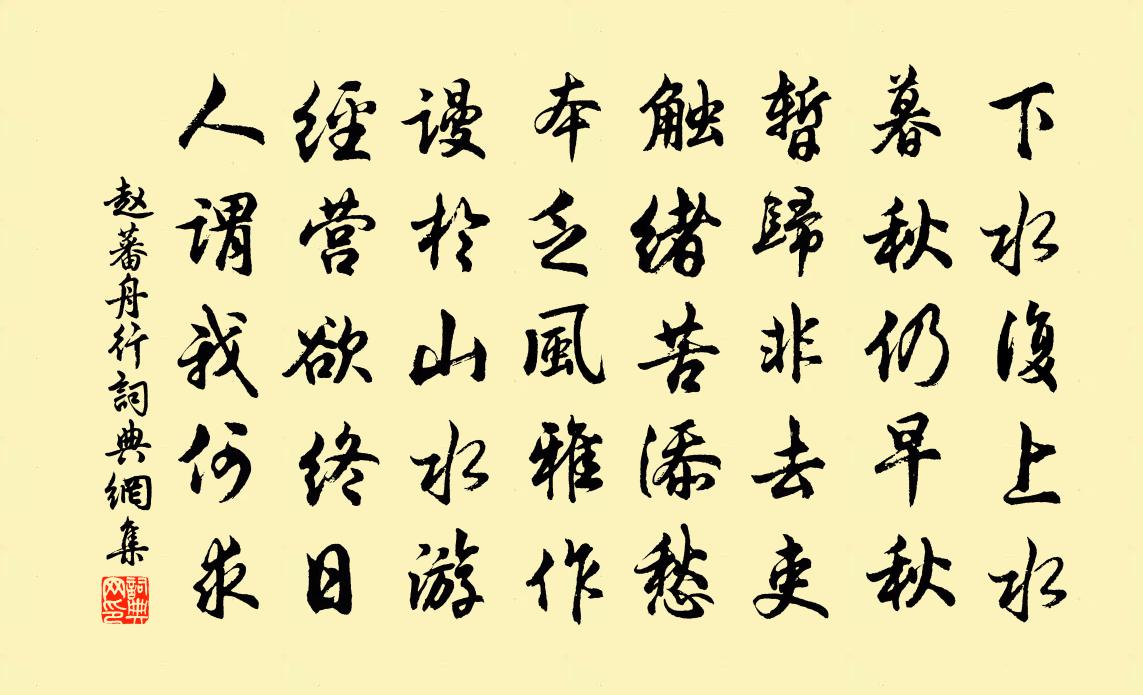 下水復上水
暮秋仍早秋
暫歸非去吏
触緒苦添愁
本乏風雅作
謾於山水游
經营欲终日
人谓我何求
赵蕃舟行詞典網集
詞典网印